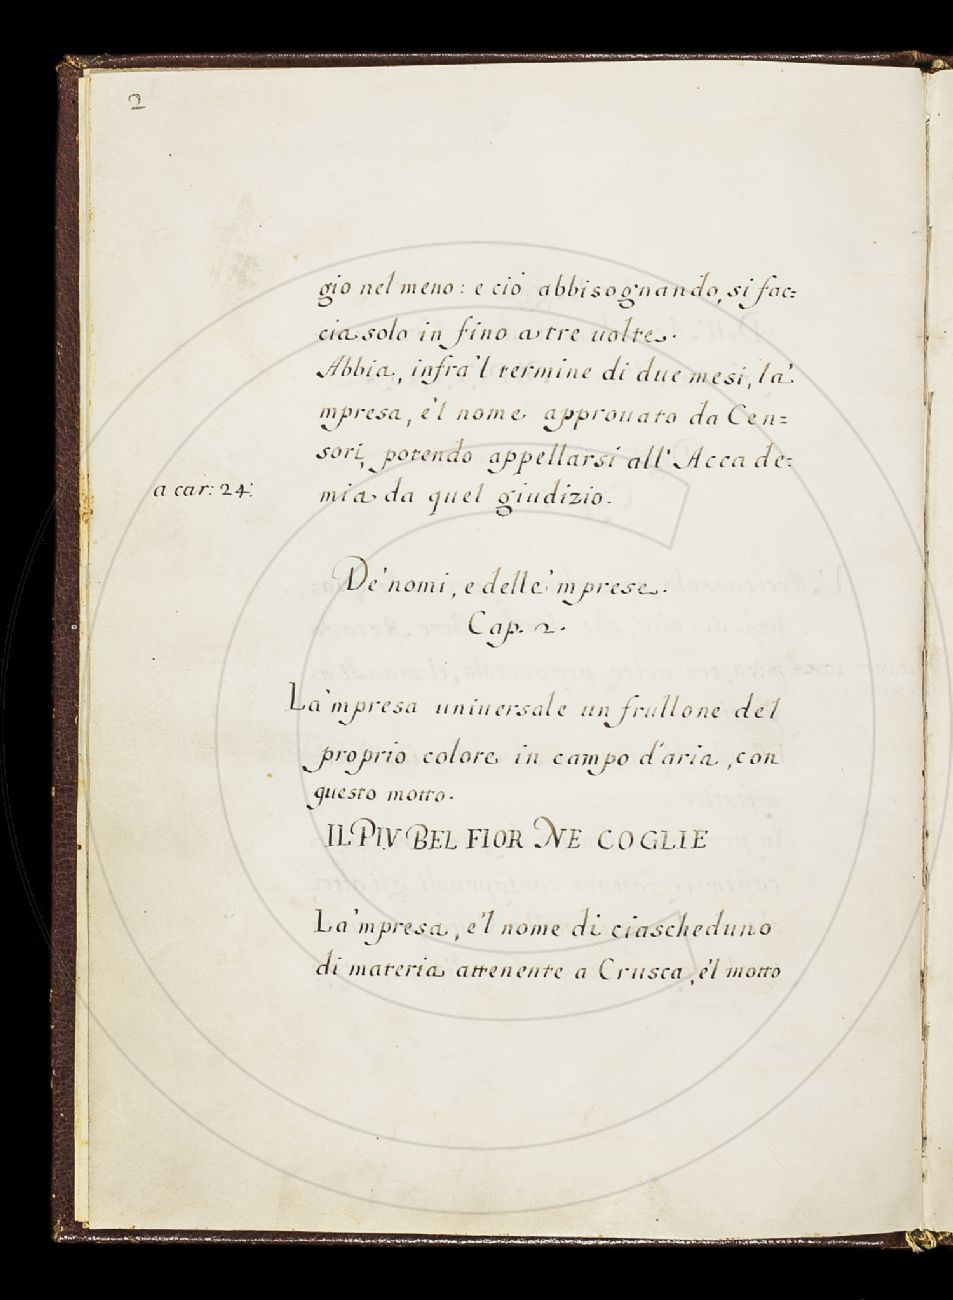 2
gio nel meno: e ciò abbisognando, si fac=
cia solo in fino a tre uolte.
Abbia, infra'l termine di due mesi, la'
mpresa, e'l nome approuato da Cen=
sori, potendo appellarsi all'Accade=
a car: 24: mia da quel giudizio.
De' nomi, e delle'mprese.
Cap. 2.
La'mpresa uniuersale un frullone del
proprio colore in campo d'aria, con
questo motto.
IL PIV BEL FIOR NE COGLIE
La'mpresa, e'l nome di ciascheduno
di materia attenente a Crusca, e'l motto